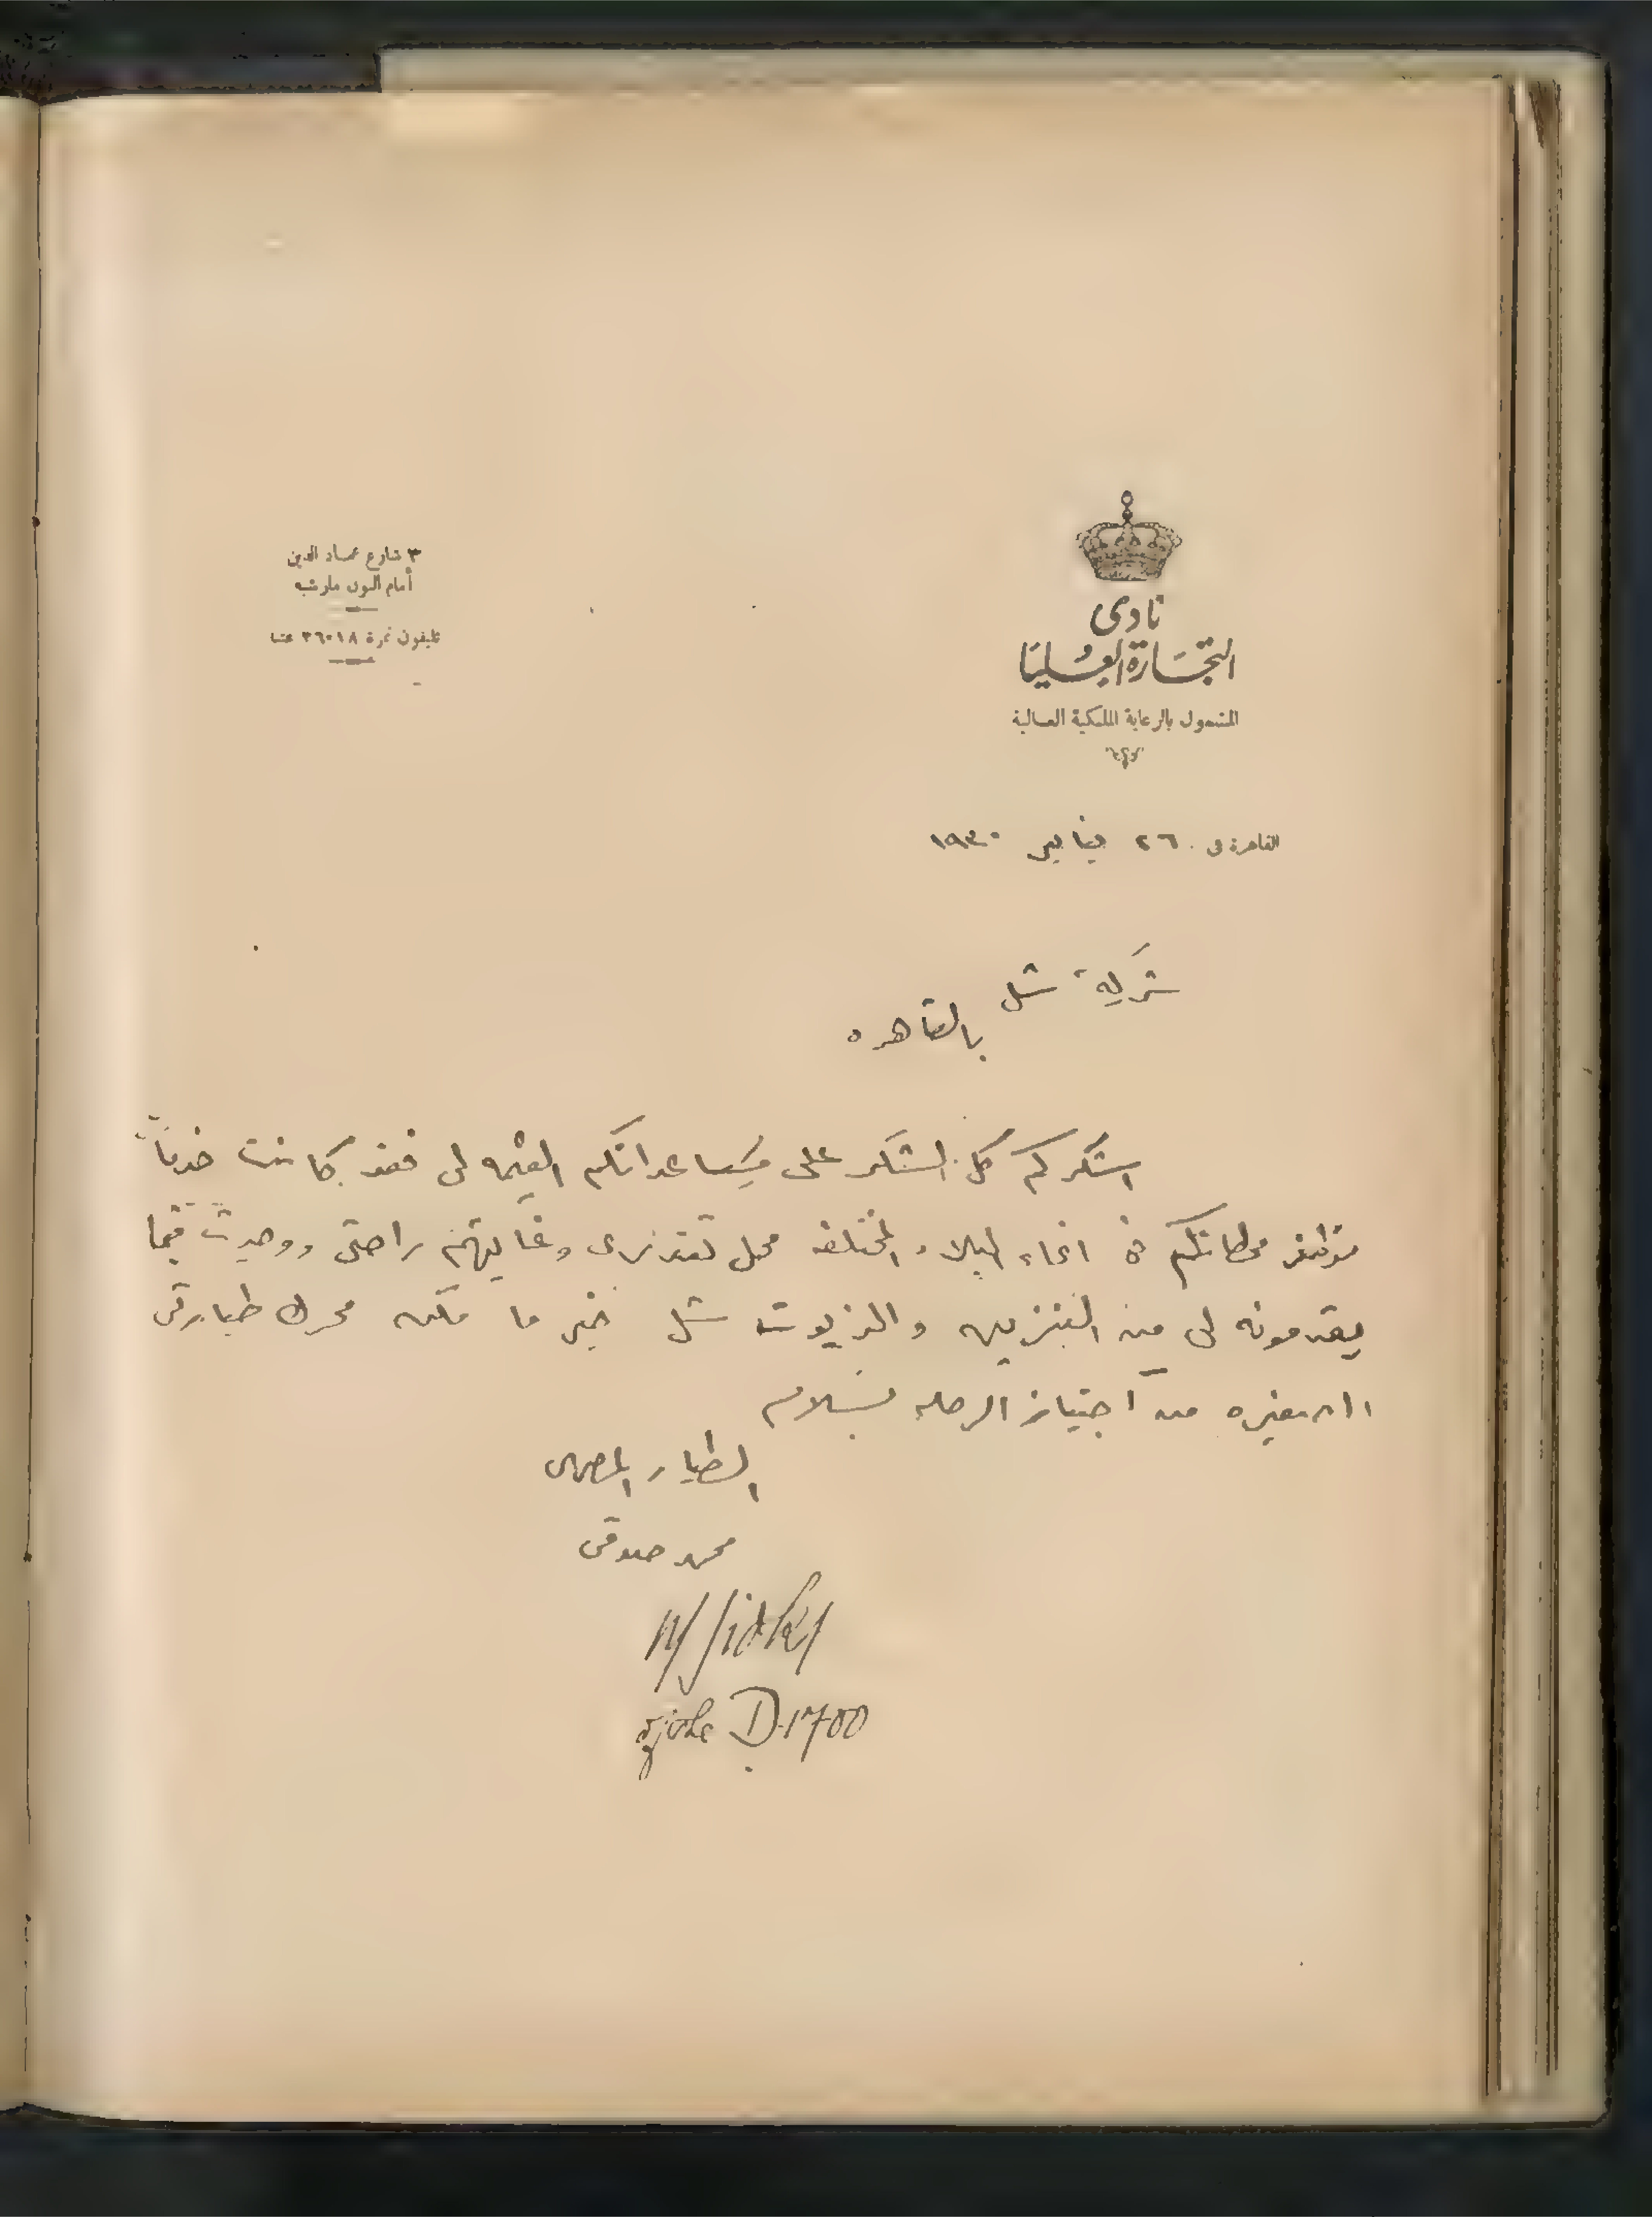 نادى
التجارة العليا
المشمول بالرعاية الملكية العالية
٣ شارع عماد الدين
أمام البون مارشيه
تليفون نمرة ٣٦٠١٨ عتبة
القاهرة فى ٢٦ يناير ١٩٣٠
شركة شل
بالقاهره
اشكركم كل الشكر على مساعداتكم القيمه لى فقد كانت خدمات
موظفى محطاتكم فى انحاء البلاد المختلفه محل تقديرى وغايتهم راحتى ووجدت فيما
يقدمونه لى من البنزين والزيوت شل خير ما مكن محرك طيارتى
الصغيره من اجتياز الرحله بسلام
الطيار المصرى
محمد صدقى
M Sidky
D.1700